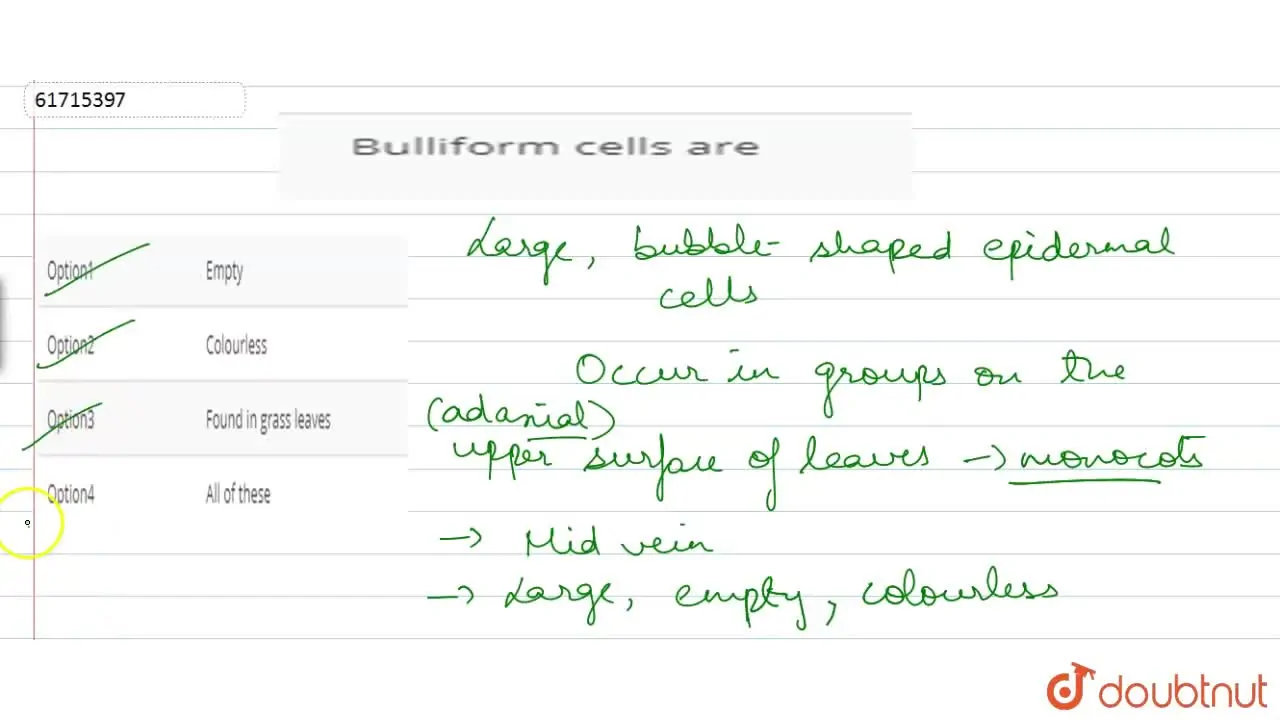 61715397
Bulliform cells are
Large, bubble- shaped epidermal
cells
Option1 Empty
Option2 Colourless
Option3 Found in grass leaves
Option4 All of these
Occur in groups on the
(adaxial)
upper surface of leaves → monocots
→ Mid vein
→ Large, empty, colourless
doubtnut